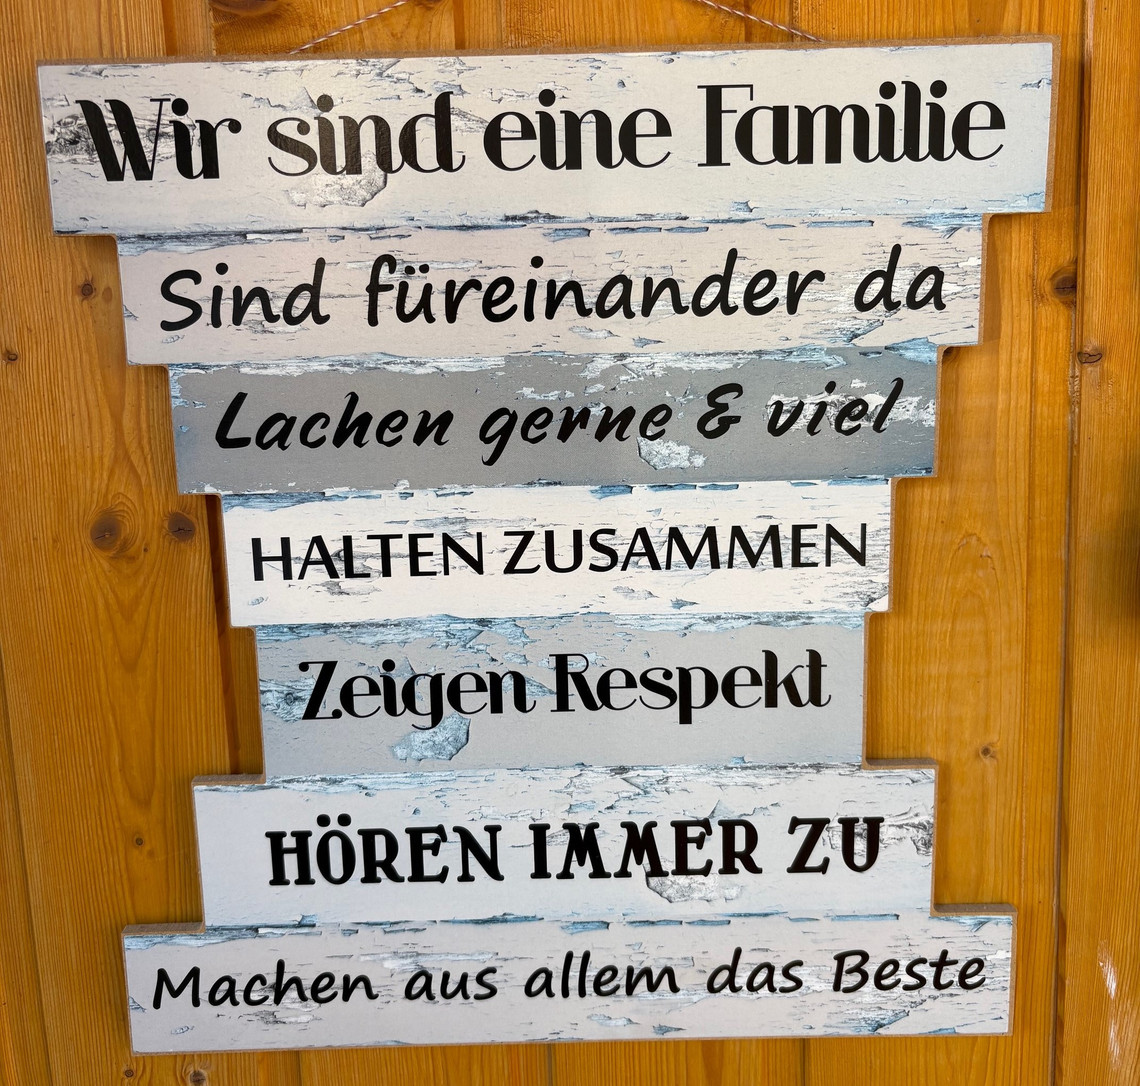 Wir sind eine Familie
Sind füreinander da
Lachen gerne & viel
HALTEN ZUSAMMEN
Zeigen Respekt
HÖREN IMMER ZU
Machen aus allem das Beste